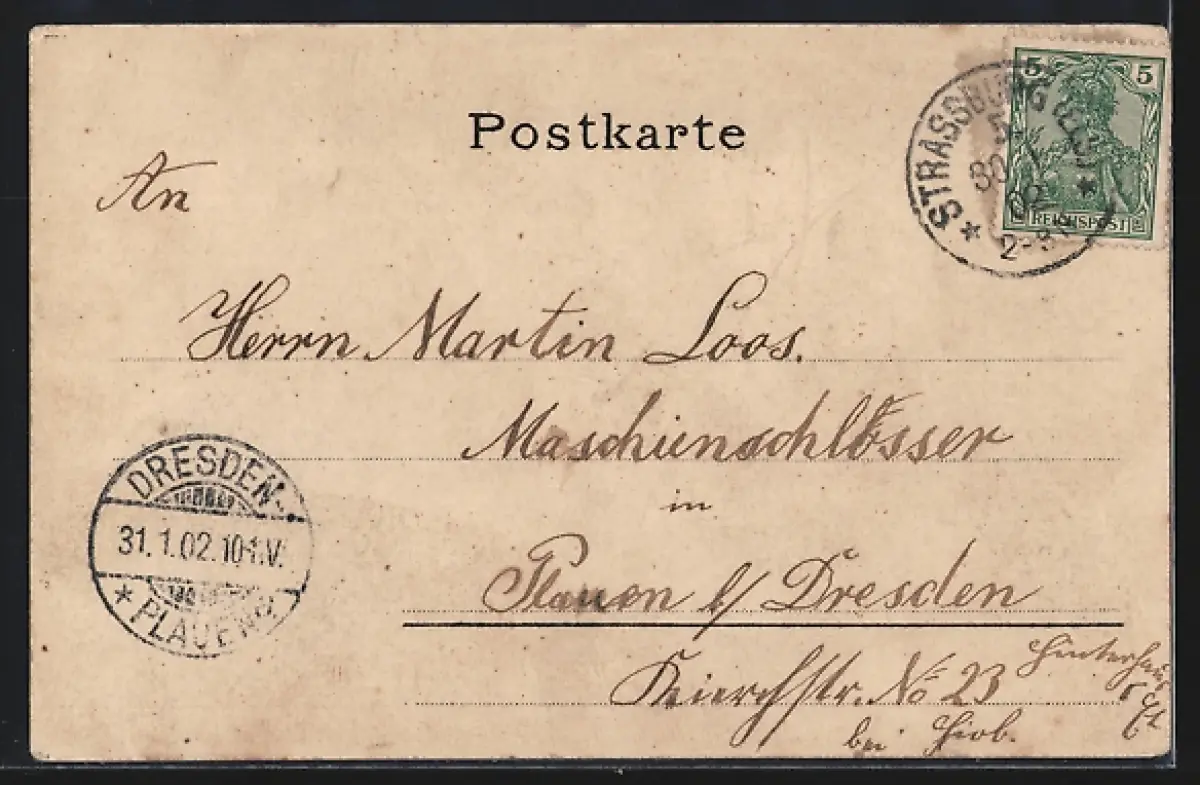 Postkarte
5 5
REICHSPOST
STRASSBURG
30. 1 02
2-3
An
Herrn Martin Loos.
Maschienschlösser
in
Plauen b/ Dresden
DRESDEN-
31.1.02.10-11.V.
* PLAUEN
No 23 Hinterhaus
bei Hiob.